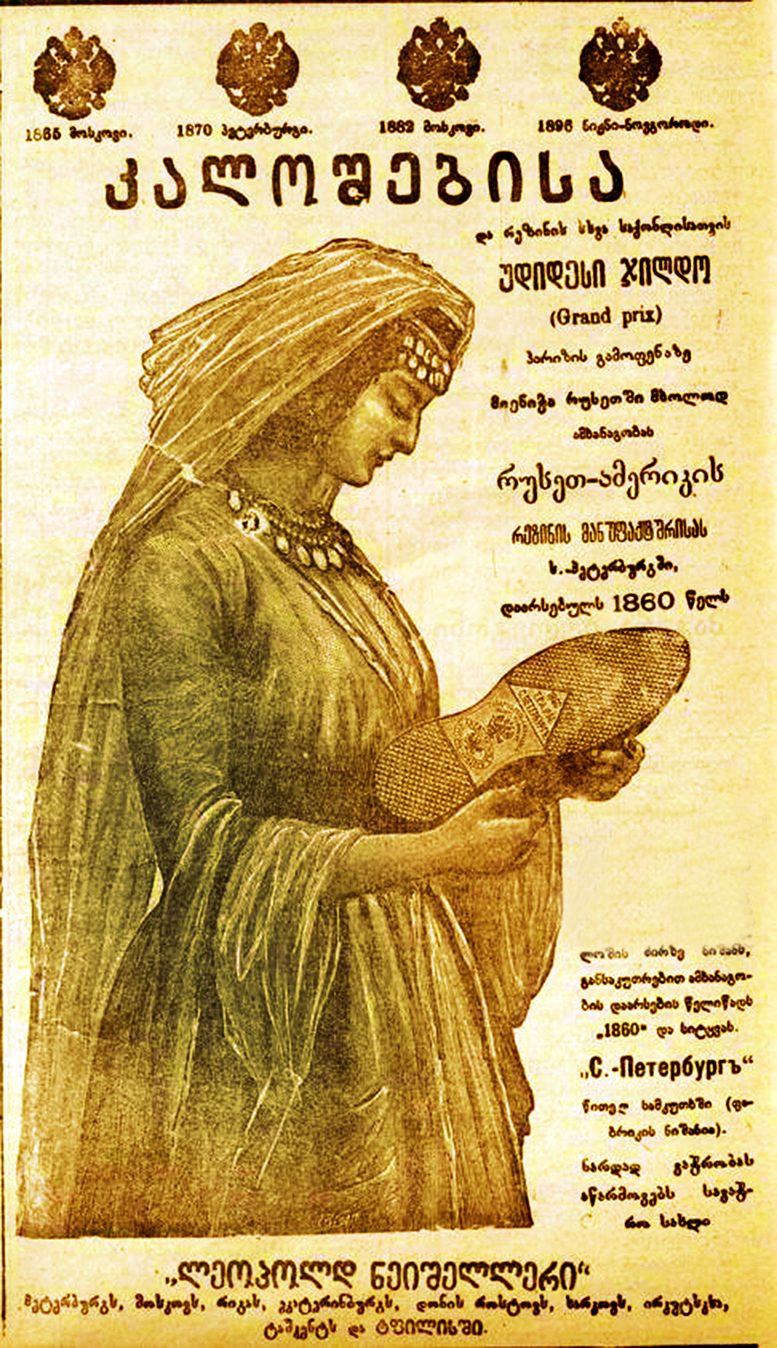 1865 მოსკოვი.
1870 პეტერბურგი.
1882 მოსკოვი.
1896 ნიჟნი-ნოვგოროდი.
კალოშებისა
და რეზინის სხვა საქონლისათვის
უდიდესი ჯილდო
(Grand prix)
პარიზის გამოფენაზე
მიენიჭა რუსეთში მხოლოდ
ამხანაგობას
რუსეთ-ამერიკის
რეზინის მანუფაქტურისას
ს.-პეტერბურგში,
დაარსებულს 1860 წელს
ლოშის ძირზე ნიშანს,
განსაკუთრებით ამხანაგო-
ბის დაარსების წელიწადს
„1860“ და სიტყვას.
„С.-Петербургъ“
წითელ სამკუთხში (ფა-
ბრიკის ნიშანია).
ნარდად ვაჭრობას
აწარმოებს სავაჭ-
რო სახლი
„ლეოპოლდ ნეიშელლერი“
პეტერბურგს, მოსკოვს, რიგას, ეკატერინბურგს, დონის როსტოვს, ხარკოვს, ირკუტსკსა,
ტაშკენტს და ტფილისში.